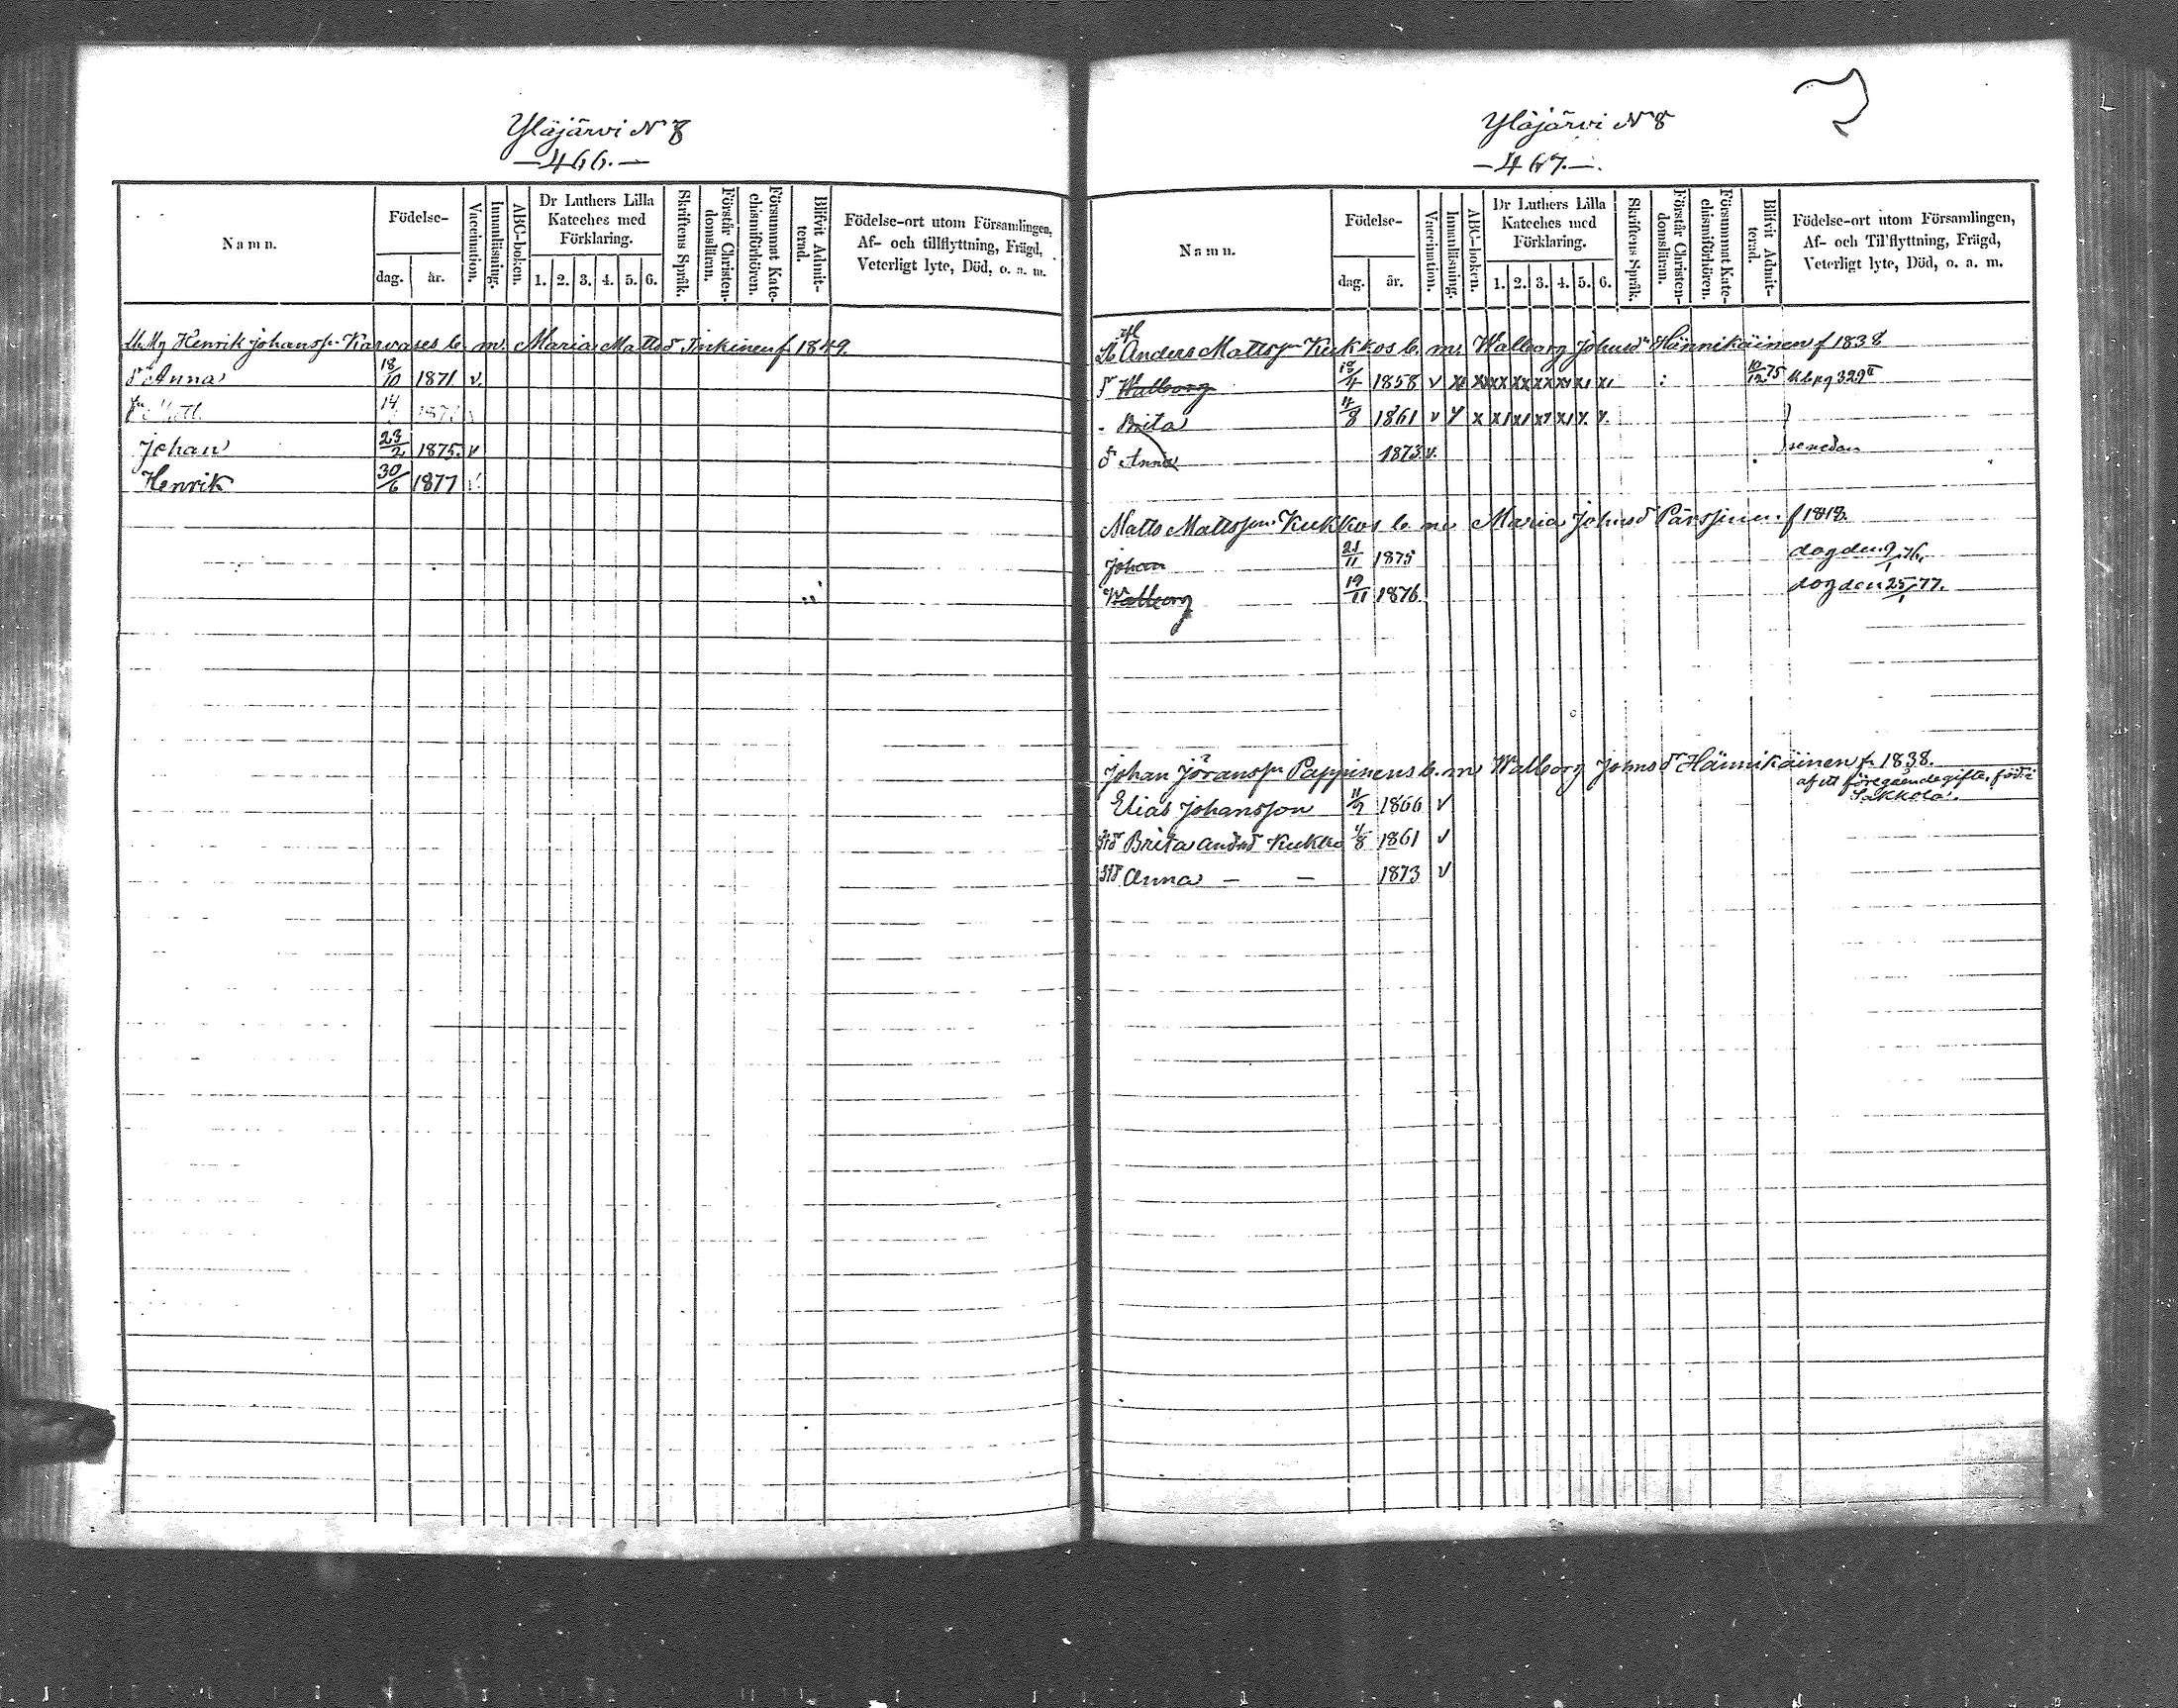 Yläjärvi N 8
—466.—
Namn.
Födelse-
dag.
år.
Vaccination.
Innanläsning.
ABC-boken.
Dr Luthers Lilla
Kateches med
Förklaring.
1. 2. 3. 4. 5. 6.
Skriftens Språk.
Förstår Christen-
domsläran.
Försummat Kate-
chismiförhören.
Blifvit Admit-
terad.
Födelse-ort utom Församlingen,
Af- och tillflyttning, Frägd,
Veterligt lyte, Död, o. s. m.
Henrik Johanss. Karvases b. m. Maria Mattsd Tirkinen f. 1849.
dr Anna 18/10 1871 v.
14
Johan 23/2 1875. v
Henrik 30/6 1877 v.
Yläjärvi N 8
—467.—.
Namn.
Födelse-
dag.
år.
Vaccination.
Innanläsning.
ABC-boken.
Dr Luthers Lilla
Kateches med
Förklaring.
1. 2. 3. 4. 5. 6.
Skriftens Språk.
Förstår Christen-
domsläran.
Försummat Kate-
chismiförhören.
Blifvit Admit-
terad.
Födelse-ort utom Församlingen,
Af- och Tillflyttning, Frägd,
Veterligt lyte, Död, o. a. m.
Anders Mattss. Kukkos b. m. Walborg Johnsdr Hännikäinen f 1838
dr Walborg 18/4 1858 v 10/12 75 329
- Brita 4/8 1861 v
dr Anna 1873 v. nenedan
Matts Mattsson Kukkos b. m. Maria Johnsd Pärssinen f 1818.
Johan 21/11 1875 dog den 9/1 76.
Walborg 19/11 1876. dog den 25/1 77.
Johan Jöranss. Pappinens b. m Walborg Johnsd Hännikäinen f. 1838.
af ett föregående gifte, född i
Sakkola.
Elias Johansson 11/7 1866 v
Std Brita Andsd Kukko 4/8 1861 v
Std Anna — — 1873 v